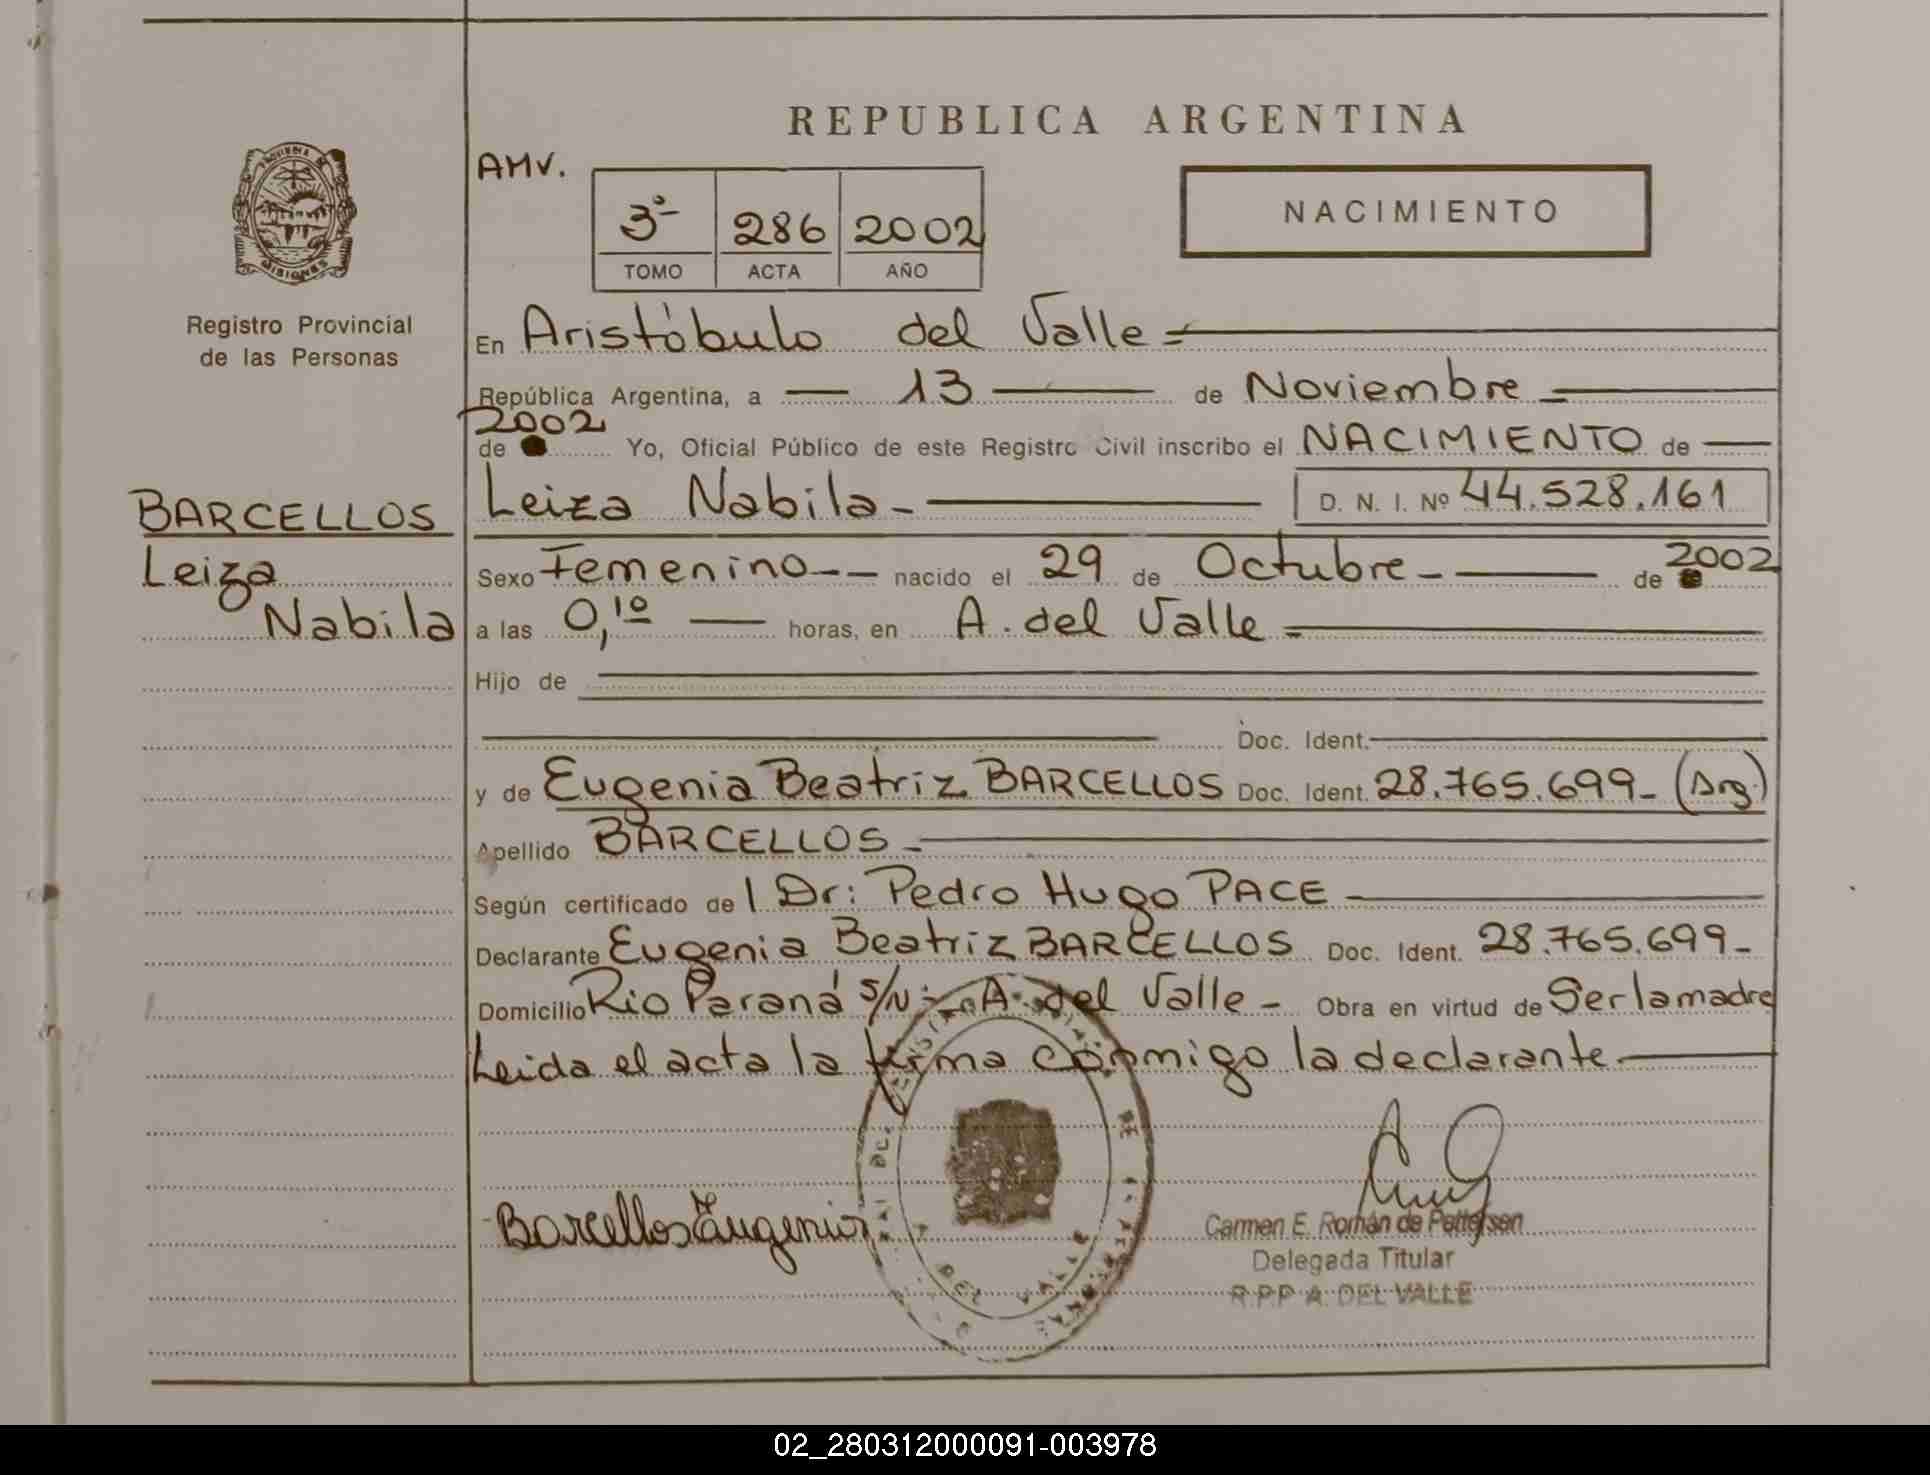 REPUBLICA ARGENTINA
AMV.
3º 286 2002
TOMO ACTA AÑO
NACIMIENTO
PROVINCIA DE
MISIONES
Registro Provincial
de las Personas
En Aristóbulo del Valle
República Argentina, a 13 de Noviembre
2002
de Yo, Oficial Público de este Registro Civil inscribo el NACIMIENTO de
BARCELLOS
Leiza
Nabila
Leiza Nabila - D. N. I. Nº 44.528.161
Sexo Femenino nacido el 29 de Octubre de 2002
a las 0,10 horas, en A. del Valle
Hijo de
Doc. Ident.
y de Eugenia Beatriz BARCELLOS Doc. Ident. 28.765.699- (Arg)
Apellido BARCELLOS
Según certificado de l Dr: Pedro Hugo PACE
Declarante Eugenia Beatriz BARCELLOS Doc. Ident. 28.765.699-
Domicilio Rio Paraná s/N- A. del Valle - Obra en virtud de Ser la madre
Leida el acta la firma conmigo la declarante
Barcellos Eugenia
DEL VALLE
Carmen E. Román de Pettersen
Delegada Titular
R.P.P A. DEL VALLE
02_280312000091-003978